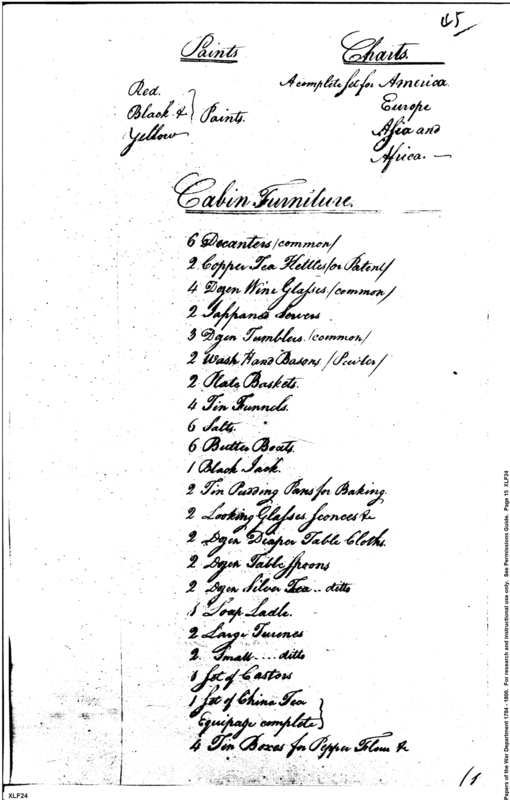 45
Paints
Red.
Black &
Yellow
Paints.
Charts.
A complete Set for America.
Europe
Asia and
Africa. —
Cabin Furniture.
6 Decanters /common/
2 Copper Tea Kettles /or Patent/
4 Dozen Wine Glasses /common/
2 Jappaned Servers
3 Dozen Tumblers /common/
2 Wash Hand Basons /Pewter/
2 Plate Baskets.
4 Tin Funnels.
6 Salts.
6 Butter Boats.
1 Black Jack.
2 Tin Pudding Pans for Baking.
2 Looking Glasses Sconces &
2 Dozen Diaper Table Cloths.
2 Dozen Table Spoons
2 Dozen Silver Tea .. ditto
1 Soup Ladle.
2 Large Tureens
2 Small .... ditto
1 Set of Castors
1 Set of China Tea
Equipage complete
4 Tin Boxes for Pepper Flour &
XLF24
Papers of the War Department 1784 - 1800. For research and instructional use only. See Permissions Guide. Page 15 XLF24